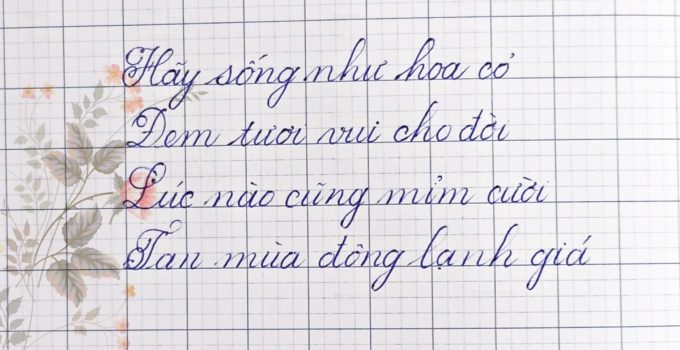 Hãy sống như hoa cỏ
Đem tươi vui cho đời
Lúc nào cũng mỉm cười
Tản mùa đông lạnh giá